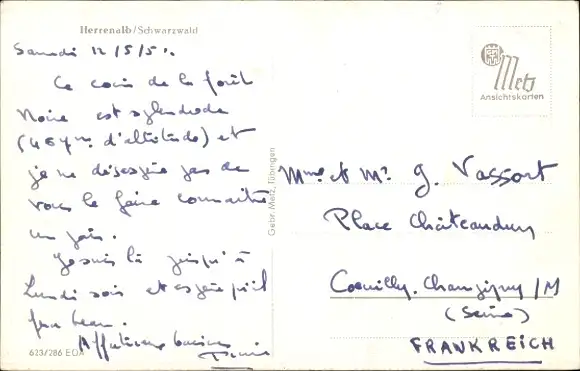 Herrenalb/Schwarzwald
Samedi 12/5/51.
Ce coin de la forêt
Noire est splendide
(467m d'altitude) et
je ne désespère pas de
vous le faire connaître
un jour.
Je suis là jusqu'à
Lundi soir et espère qu'il
fera beau.
Affectueux baisers
623/286 EOA
Gebr. Metz, Tübingen
Metz
Ansichtskarten
Mme et Mr. G. Vassort
Place Châteaudun
Coeuilly. Champigny /M
(Seine)
FRANKREICH